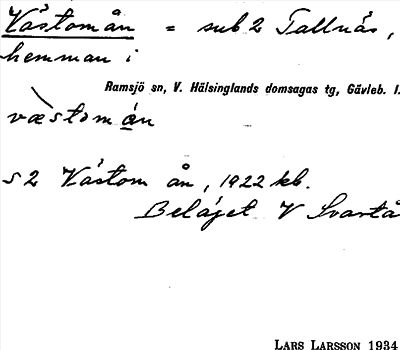 Västomån = sub 2 Tallnäs,
hemman i
Ramsjö sn, V. Hälsinglands domsagas tg, Gävleb. l.
væstomån
s 2 Västom ån, 1922 kb.
Beläget V Svartå
LARS LARSSON 1934